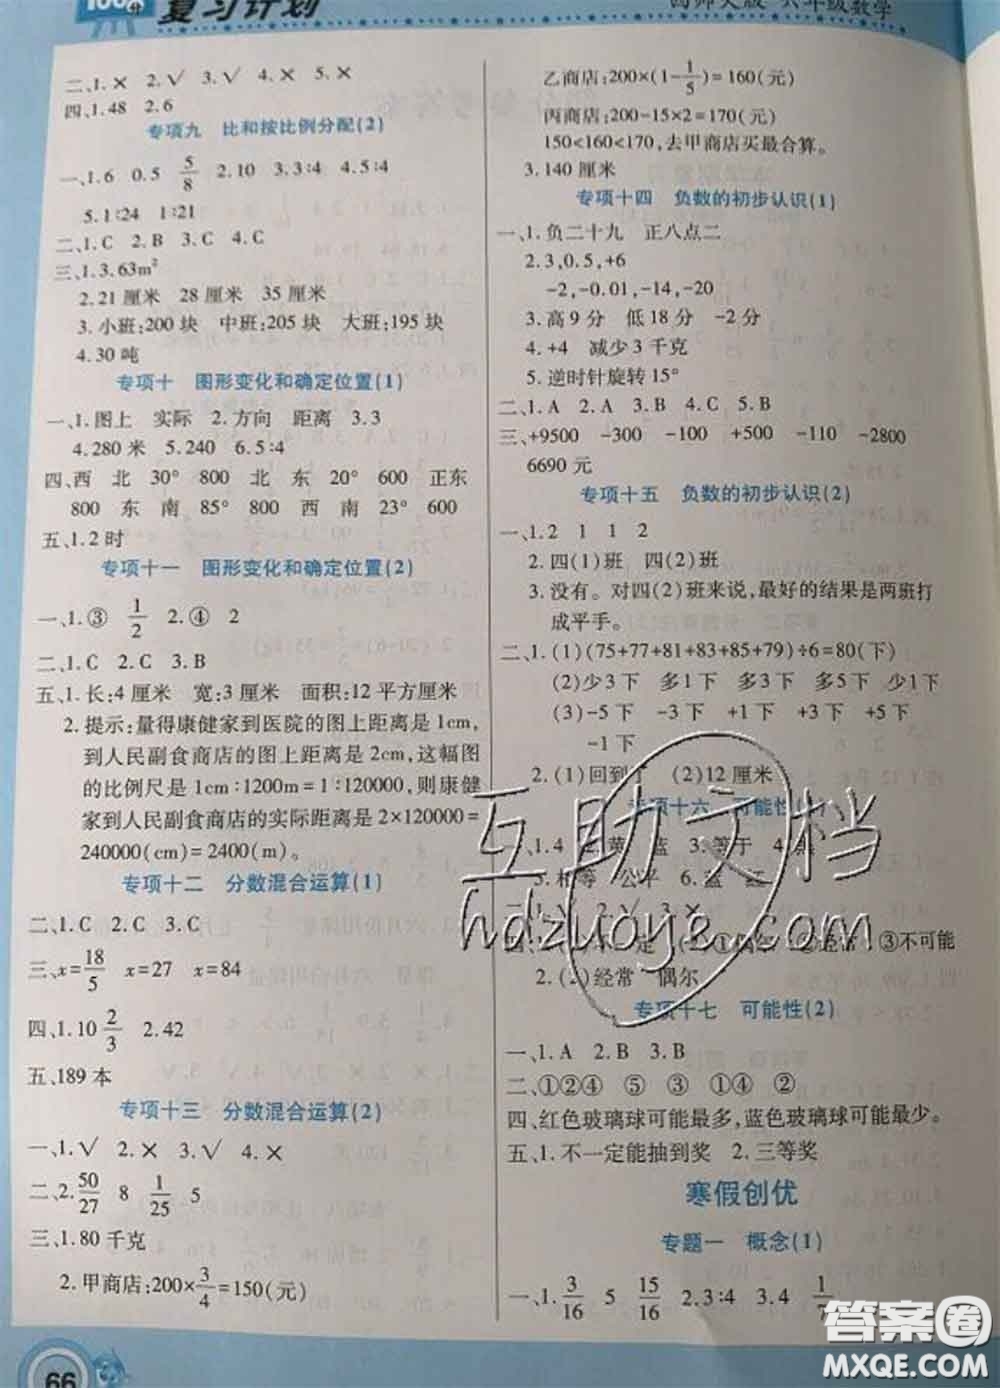 100分
复习计划
西师大版 六年级数学
二、1.× 2.√ 3.√ 4.× 5.×
四、1.48 2.6
专项九 比和按比例分配(2)
一、1.6 0.5 5/8 2.10 3.3∶4 4.17∶5
5.1∶24 1∶21
二、1.C 2.B 3.C 4.C
三、1.3.63m²
2.21厘米 28厘米 35厘米
3.小班:200块 中班:205块 大班:195块
4.30吨
专项十 图形变化和确定位置(1)
一、1.图上 实际 2.方向 距离 3.3
4.280米 5.240 6.5∶4
四、西 北 30° 800 北 东 20° 600 正东
800 东 南 85° 800 西 南 23° 600
五、1.2时
专项十一 图形变化和确定位置(2)
一、1.③ 1/2 2.④ 2
二、1.C 2.C 3.C
五、1.长:4厘米 宽:3厘米 面积:12平方厘米
2.提示:量得康健家到医院的图上距离是1cm,
到人民副食商店的图上距离是2cm,这幅图
的比例尺是1cm∶1200m=1∶120000,则康健
家到人民副食商店的实际距离是2×120000=
240000(cm)=2400(m)。
专项十二 分数混合运算(1)
二、1.C 2.C 3.C
三、x=18/5 x=27 x=84
四、1.10 2/3 2.42
五、189本
专项十三 分数混合运算(2)
一、1.√ 2.× 3.√ 4.×
二、2.50/27 8 1/25 5
三、1.80千克
2.甲商店:200×3/4=150(元)
66
乙商店:200×(1-1/5)=160(元)
丙商店:200-15×2=170(元)
150<160<170,去甲商店买最合算。
3.140厘米
专项十四 负数的初步认识(1)
一、1.负二十九 正八点二
2.3,0.5,+6
-2,-0.01,-14,-20
3.高9分 低18分 -2分
4.+4 减少3千克
5.逆时针旋转15°
二、1.A 2.A 3.B 4.C 5.B
三、+9500 -300 -100 +500 -110 -2800
6690元
专项十五 负数的初步认识(2)
一、1.2 1 1 2
2.四(1)班 四(2)班
3.没有。对四(2)班来说,最好的结果是两班打
成平手。
二、1.(1)(75+77+81+83+85+79)÷6=80(下)
(2)少3下 多1下 多3下 多5下 少1下
(3)-5下 -3下 +1下 +3下 +5下
-1下
2.(1)回到了 (2)12厘米
专项十六 可能性(1)
一、1.4 2.黄 蓝 3.等于 4.
5.相等 公平 6.蓝 红
二、1.√ 2.√ 3.×
四、1.(1)不一定 (2)①偶尔 ②经常 ③不可能
2.(2)经常 偶尔
专项十七 可能性(2)
一、1.A 2.B 3.B
二、①②④ ⑤ ③ ①④ ②
四、红色玻璃球可能最多,蓝色玻璃球可能最少。
五、1.不一定能抽到奖 2.三等奖
寒假创优
专题一 概念(1)
一、1.3/16 5 15/16 2.3∶4 3.4 1/7
互助文档
hdzuoye.com
答案圈
MXQE.COM